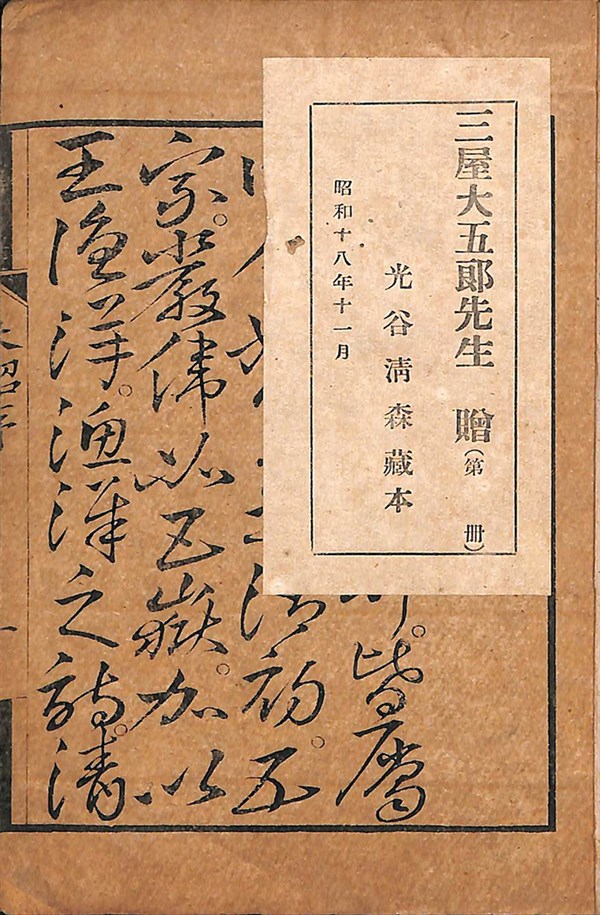 三屋大五郎先生 贈(第 冊)
光谷清森藏本
昭和十八年十一月
皆
初。五
家。嚴偉如五嶽。加以
王漁洋。漁洋之詩。清